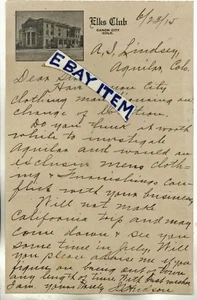 Elks Club
CANON CITY
COLO.
6/28/15
A. J. Lindsey,
Aguilar, Colo.
Dear Sir:
Have Canon City
clothing man
change of location.
Do you think it worth
while to investigate
Aguilar and would an
exclusive mens cloth-
ing & Furnishings con-
flict with your business.
Will not make
California trip and may
come down & see you
some time in July. Will
you please advise me if you
figure on being out of town
any length of time. With best wishes
I am yours truly
EBAY ITEM